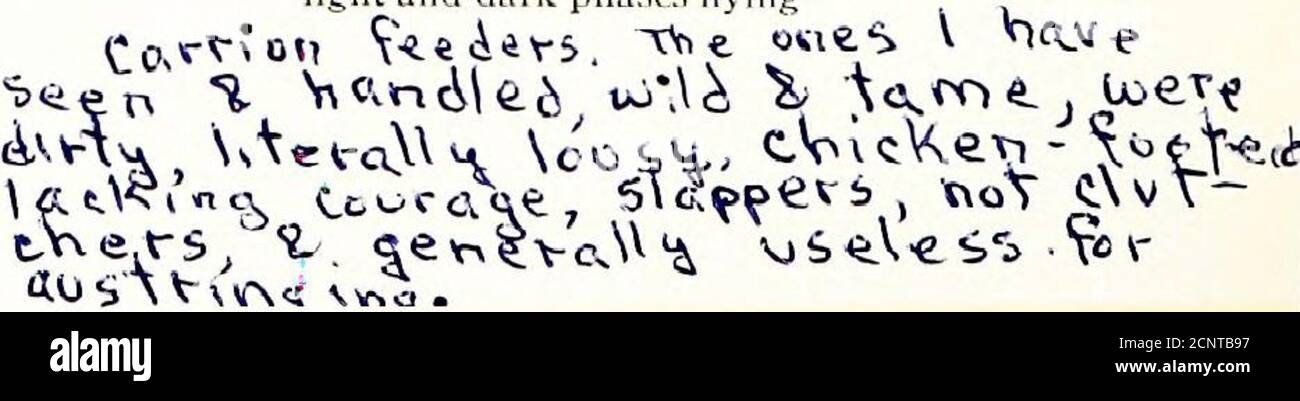 light and dark phases flying
Carrion feeders. The ones I have
seen & handled, wild & tame, were
dirty, literally lousy, chicken-footed
lacking courage, slappers, not clut-
chers, & generally useless for
austringing.
alamy
Image ID: 2CNTB97
www.alamy.com